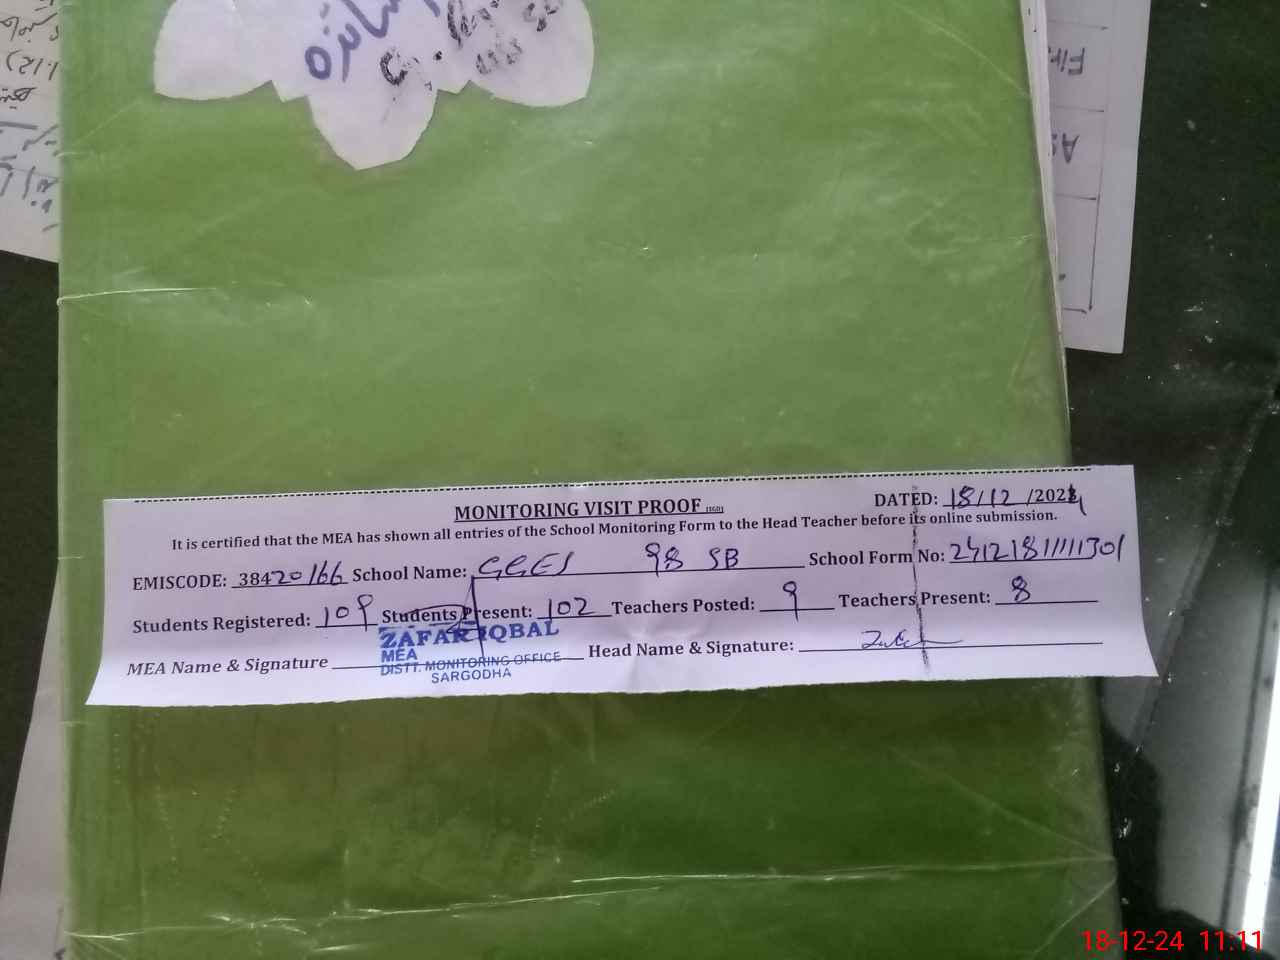 MONITORING VISIT PROOF (SGD)
DATED: 18/12/2024
It is certified that the MEA has shown all entries of the School Monitoring Form to the Head Teacher before its online submission.
EMISCODE: 38420166 School Name: GGES 98 SB School Form No: 241218111111301
Students Registered: 109 Students Present: 102 Teachers Posted: 9 Teachers Present: 8
MEA Name & Signature Head Name & Signature:
ZAFAR IQBAL
MEA
DISTT. MONITORING OFFICE
SARGODHA
18-12-24 11:11